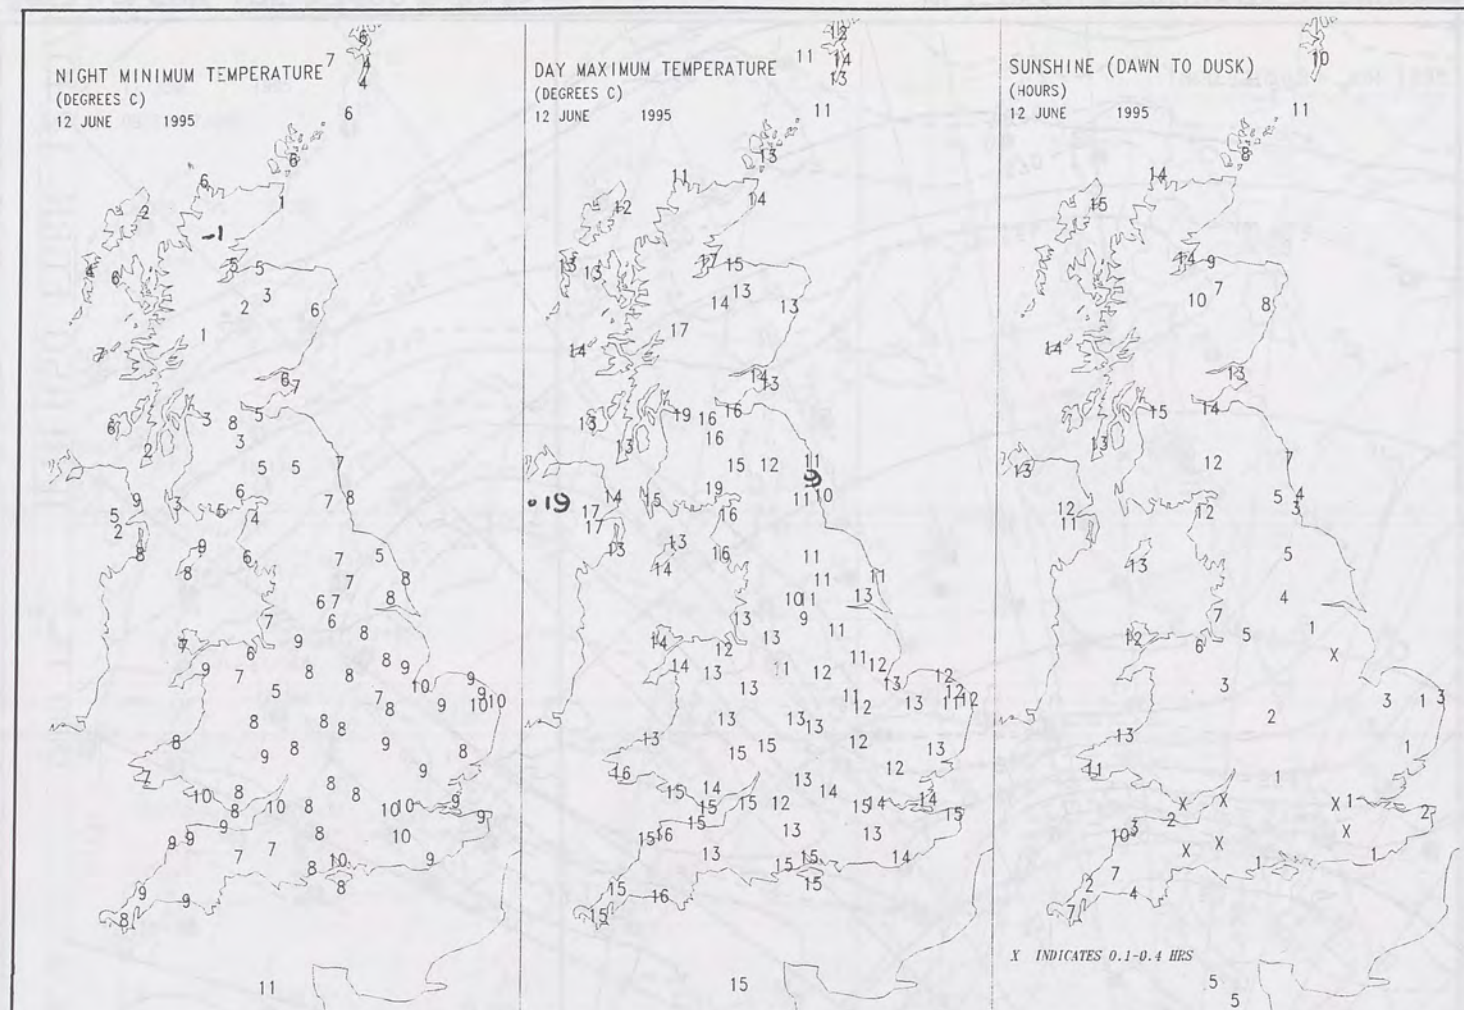 NIGHT MINIMUM TEMPERATURE
(DEGREES C)
12 JUNE 1995
6
7 4
4
6
6
6
2 1
-1
5 5
4 6
3
2 6
1
7
6 7
3 8 5
6
2 3
5 5 7
9 3 6 8
5 5 4 7
2
8 9 6 7 5
8 7 8
6 7 8
7 6 8
7 9
6 8 9
9 7 8 8 9
5 10 9 10
7 8 9
8 8 8
8 9 8 9 8
7 8 9
10 8 8 8
8 10 8 10 10 9
9 9 9 8 10 9
7 7 8 10 9
8
9 9
8
11
DAY MAXIMUM TEMPERATURE
(DEGREES C)
12 JUNE 1995
12
11 14
13
11
13
11
12 14
17 15
13 13
14 13 13
17
14
14 13
13 19 16 16
13 16
15 12 11
9
•19 14 15 19 11 10
17 16
17
13 13 16 11
14 11 11
10 11 13
13 9
14 13 11
12
14 13 11 12 11 12
13 13 12
11 13 11 12
13 13 13 12
13 15 15 12 13
16 13 12
15 14 14
15 15 12 15 14 14
15 16 15 13 13 15
13 15 15 14
15
15 16
15
15
SUNSHINE (DAWN TO DUSK)
(HOURS)
12 JUNE 1995
10
11
8
14
15
14 9
7
10 8
14
13
15 14
13
13 12 7
12 12 5 4
11 3
13 5
4
7 1
12 6 5 X
3 3 1 3
2
13 1
11 1
X X X 1
2 2
10 3 X X X
1 1
7
2 4
7
X INDICATES 0.1-0.4 HRS
5
5